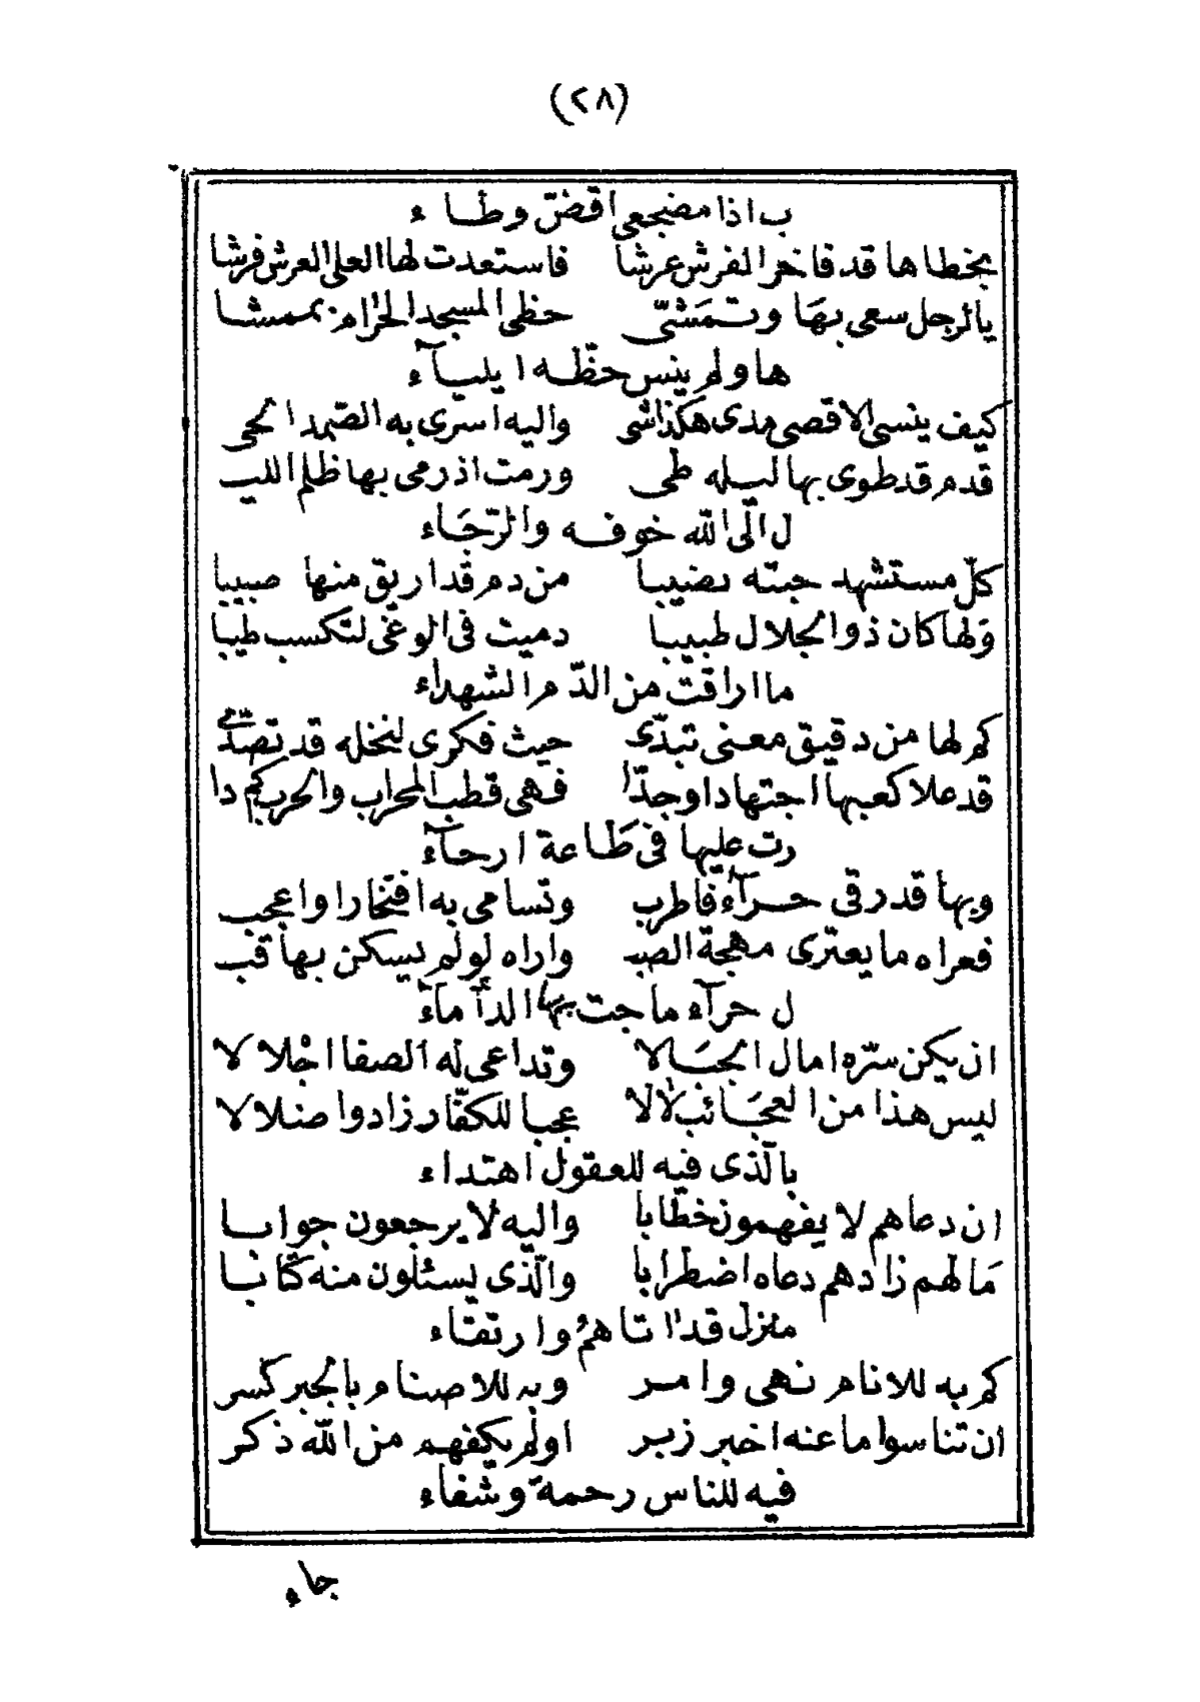 (٢٨)
ب اذا مضجعى اقضّ وطاء
بخطاها قد فاخر الفرش عرشا فاستعدت لها العلى العرش فرشا
يا لرجل سعى بهَا وتمَشّى حظى المسجد الحرام بممشا
ها ولم ينس حظّه ايليآء
كيف ينسى الاقصى مدى هكذا شى واليه اسرى به الصّمد الحى
قدم قد طوى بها ليله طى ورمت اذ رمى بها ظلم الليـ
ل الى الله خوفه والرّجَاء
كلّ مستشهد جبته نصيبا من دم قد اريق منها صبيبا
ولها كان ذو الجلال طبيبا دميت فى الوغى لتكسب طيبا
ما اراقت من الدّم الشهداء
كم لها من دقيق معنى تبدّى حيث فكرى لنخله قد تصدّى
قد علا كعبها اجتهادا وجدّا فهى قطب المحراب والحرب كم دا
رت عليها فى طَاعة ارحآء
وبها قد رقى حرآء فاطرب وتسامى به افتخارا واعجب
فعراه ما يعترى مهجة الصب واراه لو لم يسكن بها قب
ل حرآء ماجت بها الدأمآء
ان يكن سرّه امال الجبَالا وتداعى له الصفا اجْلالا
ليس هذا من العجَائب لالا عجبا للكفّار زادوا ضلالا
بالّذى فيه للعقول اهتداء
ان دعاهم لا يفهمون خطابا واليه لا يرجعون جوابا
مَا لهم زادهم دعاه اضطرابا والّذى يسئلون منه كتابا
منزل قد اتاهمُ وارتقاء
كم به للانام نهى وامر وبه للاصنام بالجبر كسر
ان تناسوا ما عنه اخبر زبر اولم يكفهم من الله ذكر
فيه للناس رحمة وشفاء
جاء